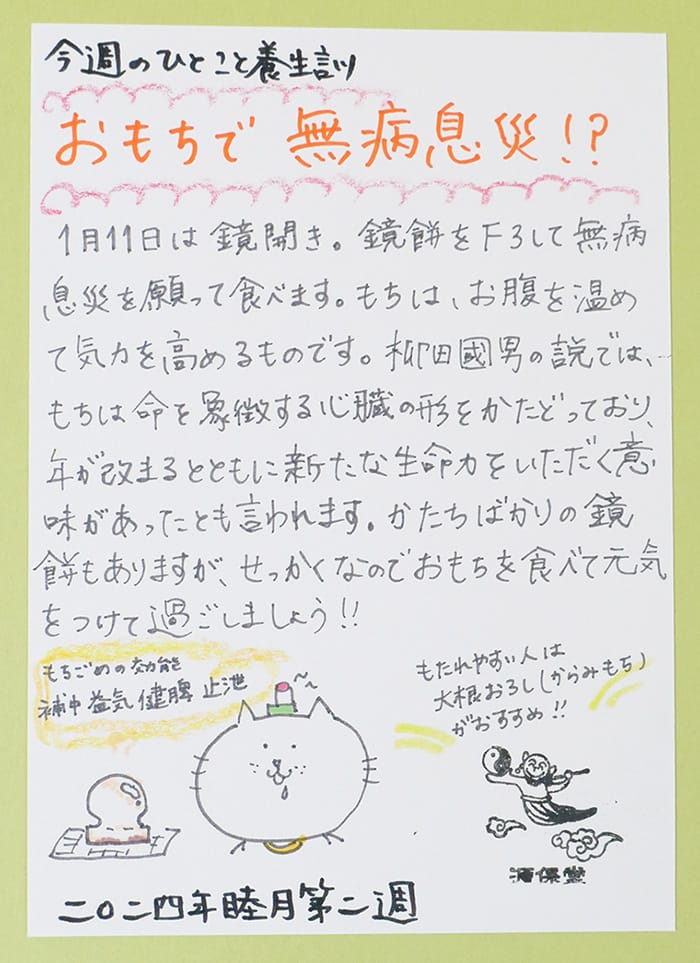 今週のひとこと養生訓
おもちで 無病息災!?
1月11日は鏡開き。鏡餅を下ろして無病
息災を願って食べます。もちは、お腹を温め
て気力を高めるものです。柳田國男の説では、
もちは命を象徴する心臓の形をかたどっており、
年が改まるとともに新たな生命力をいただく意
味があったとも言われます。かたちばかりの鏡
餅もありますが、せっかくなのでおもちを食べて元気
をつけて過ごしましょう!!
もちごめの効能
補中 益気 健脾 止泄
もたれやすい人は
大根おろし(からみもち)
がおすすめ!!
源保堂
二〇二四年睦月第二週